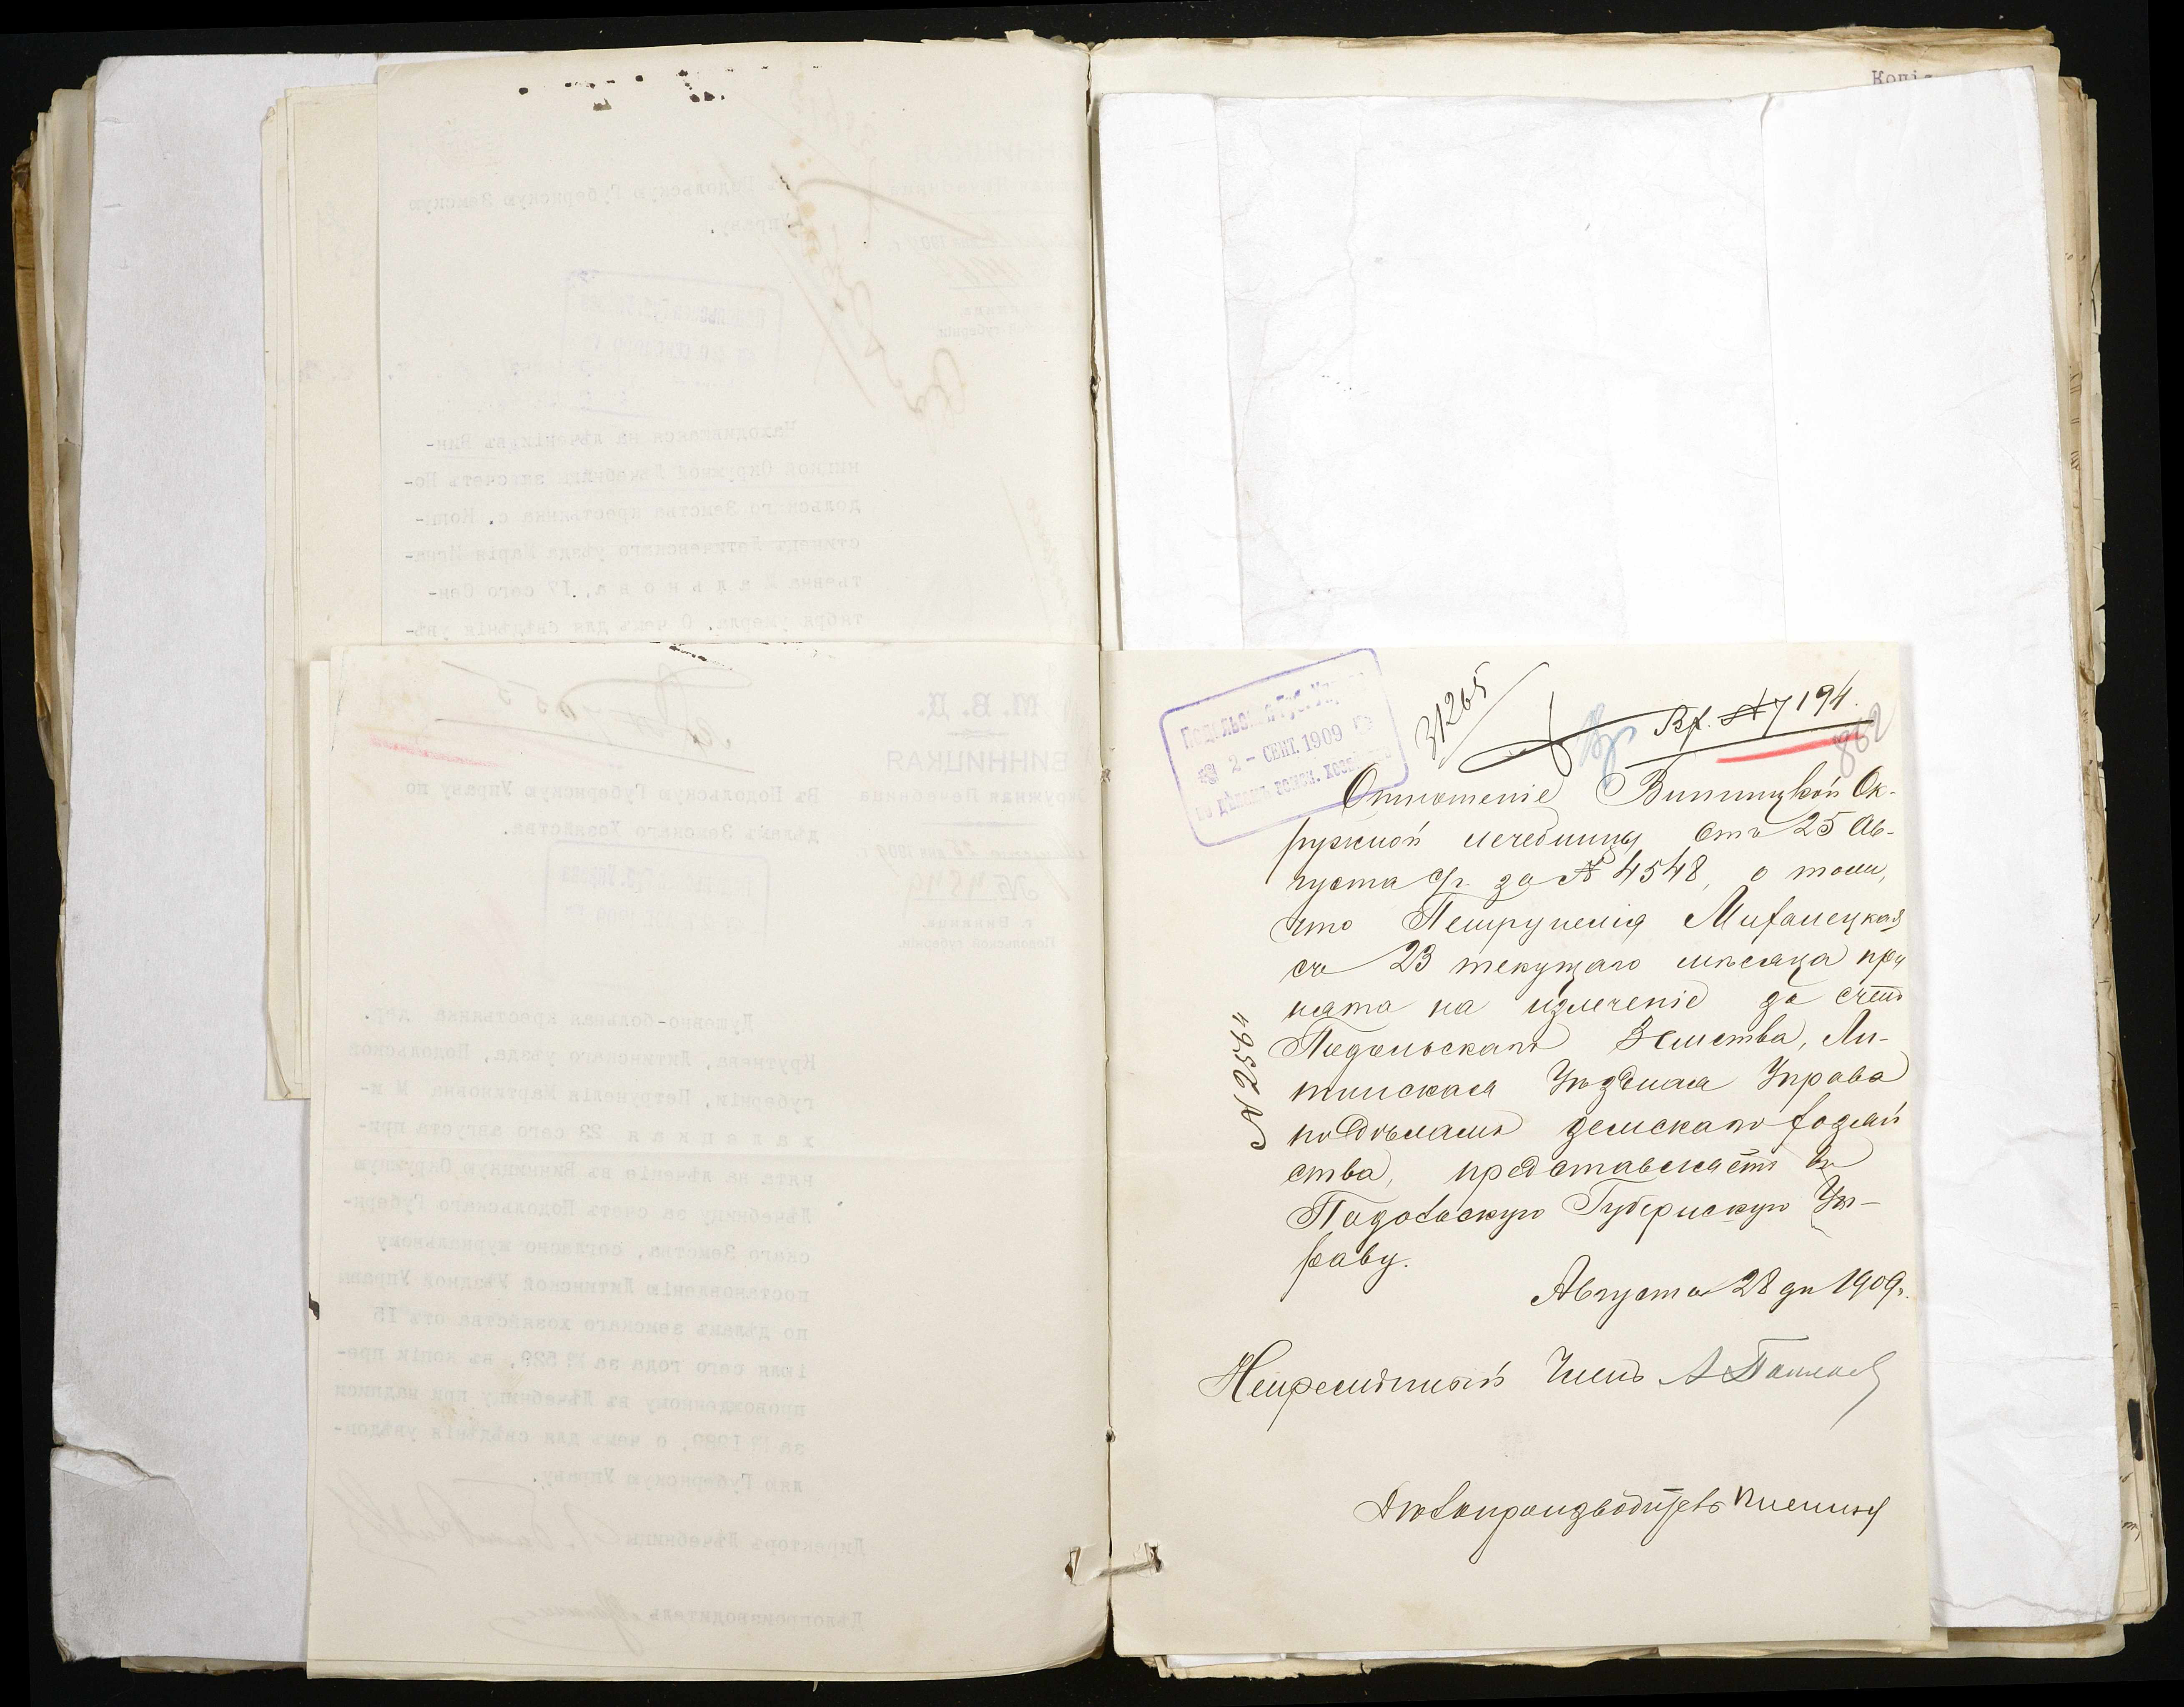 Копія
Подольская Губ. Управа
2 - СЕНТ. 1909
по дѣламъ земск. хозяйства
31265
Вх. № 7194.
862
Отношеніе Винницкой Ок-
ружной лечебницы отъ 25 Ав-
густа с/г. за № 4548, о томъ,
что Петрунелія Михалецкая
съ 23 текущаго мѣсяца при
нята на излеченіе за счетъ
Подольскаго Земства, Ли-
тинская Уѣздная Управа
по дѣламъ земскаго хозяй
ства, представляетъ въ
Подольскую Губернскую Уп-
раву.
Августа 28 дн 1909г.
Непремѣнный Членъ
Дѣлопроизводитель
№ 2564
М. В. Д.
ВИННИЦКАЯ
Окружная Лечебница
№ 4548
г. Винница.
Подольской губерніи.
Въ Подольскую Губернскую Управу по
дѣламъ Земскаго Хозяйства.
Душевно-больная крестьянка дер.
Крутнева, Литинскаго уѣзда, Подольской
губерніи, Петрунелія Мартиновна М и-
х а л е ц к а я 23 сего августа при-
нята на лѣченіе въ Винницкую Окружную
Лѣчебницу за счетъ Подольскаго Губерн-
скаго Земства, согласно журнальному
постановленію Литинской Уѣздной Управы
по дѣламъ земскаго хозяйства отъ 15
іюля сего года за № 529, въ копіи пре-
провожденному въ Лѣчебницу при надписи
за № 1989, о чемъ для свѣдѣнія увѣдом-
ляю Губернскую Управу.
Директоръ Лѣчебницы
Дѣлопроизводитель
Въ Подольскую Губернскую Земскую
Управу.
Находившаяся на лѣченіи въ Вин-
ницкой Окружной Лѣчебницѣ за счетъ По-
дольскаго Земства крестьянка с.
Летичевскаго уѣзда Марія
17 сего Сен-
тября умерла. О чемъ для свѣдѣнія увѣ-